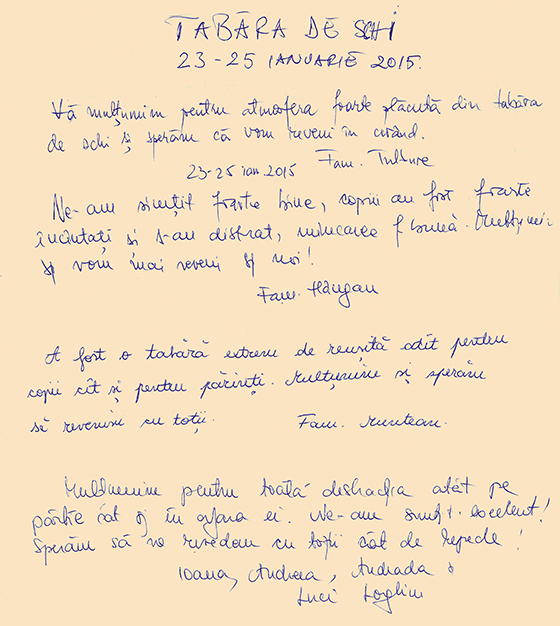 TABĂRA DE SCHI
23-25 IANUARIE 2015.
Vă mulțumim pentru atmosfera foarte plăcută din tabăra
de schi și sperăm că vom reveni în curând.
23-25 ian. 2015 Fam. Tulture
Ne-am simțit foarte bine, copiii au fost foarte
încîntați și s-au distrat, mîncarea f bună. Mulțumim
și vom mai reveni și noi!
Fam. Hăngan
A fost o tabără extrem de reușită atît pentru
copii cît și pentru părinți. Mulțumim și sperăm
să revenim cu toții. Fam. Muntean.
Mulțumim pentru toată distracția atât pe
pârtie cât și în afara ei. Ne-am simțit excelent!
Sperăm să ne revedem cu toții cât de repede!
Ioana, Andreea, Andrada &
Luci